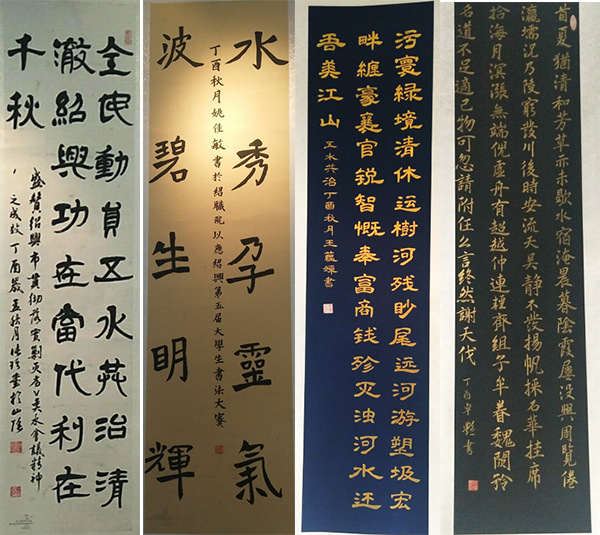 全民動員五水共治清
澈紹興功在當代利在
千秋
盛贊紹興市貫徹落實剿灭劣V类水會議精神
之成效丁酉歲孟秋月書於山陰
水秀孕靈氣
丁酉秋月姚佳敏書於紹職院以應紹興第五届大學生書法大賽
波碧生明輝
污寰緑境清休运樹河残眇尾远河游塑圾宏
畔纏豪襄官锐智慨奉富商钱殄灭浊河水还
吾美江山 五水共治丁酉秋月王蕴婵書
首夏猶清和芳草亦未歇水宿淹晨暮陰霞屢没興周覽倦
瀛壖况乃陵窮發川後時安流天吴静不發揚帆採石華挂席
拾海月溟漲無端倪虚舟有超越仲連輕齊組子牟眷魏闕矜
名道不足適己物可忽請附任公言終然謝天伐 丁酉卓書